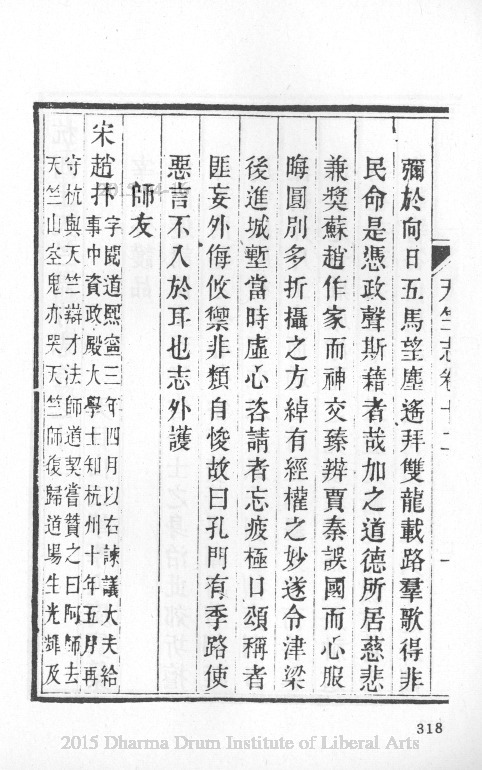 天竺志卷十二
彌於向日五馬望塵遙拜雙龍載路羣歌得非
民命是憑政聲斯藉者哉加之道德所居慈悲
兼獎蘇趙作家而神交臻辨賈秦誤國而心服
晦圓別多折攝之方綽有經權之妙遂令津梁
後進城塹當時虛心咨請者忘疲極口頌稱者
匪妄外侮攸禦非類自悛故曰孔門有季路使
惡言不入於耳也志外護
師友
宋趙抃
字閱道熙寧三年四月以右諫議大夫給
事中資政殿大學士知杭州十年五月再
守杭與天竺辯才法師道契嘗贊之曰阿師去
天竺山空鬼亦哭天竺師復歸道場生光輝及
318
2015 Dharma Drum Institute of Liberal Arts